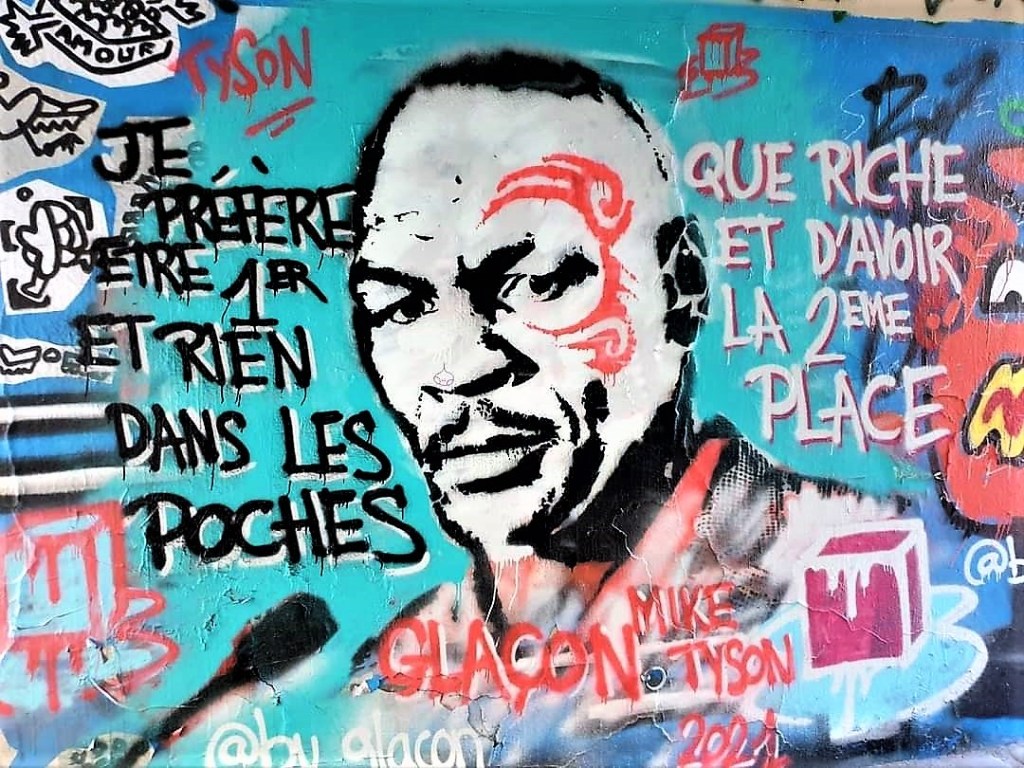 AMOUR
TYSON
JE
PRÉFÈRE
ETRE 1ER
ET RIEN
DANS LES
POCHES
QUE RICHE
ET D'AVOIR
LA 2EME
PLACE
GLAÇON
MIKE
TYSON
2021
@by_glacon
@b